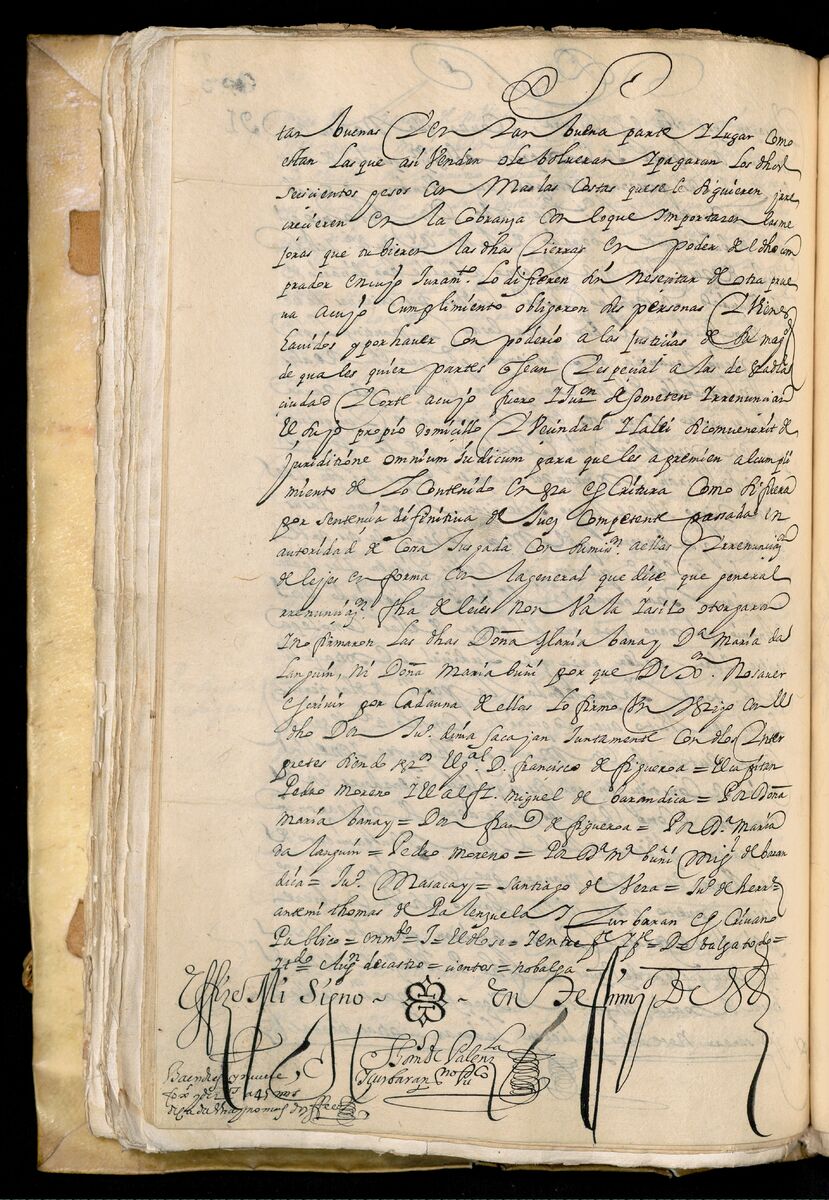 tan buenas Y en tan buena parte Y lugar como
estan las que asi Venden o le bolueran Y pagaran los dhos
seiscientos pesos con Mas las Costas que se le siguieren y rre
crecieren en la Cobranza con lo que Importaren las me
joras que tubieren las dhas tierras en poder del dho com
prador en cuyo Juramto. lo difieren sin Nesesitar de otra prue
ua a cuyo Cumplimiento obligaron sus personas Y Vienes
hauidos y por hauer Con poderio a las Justicias de Su magd
de quales quier partes q Sean Y especial a las de esta
ciudad Y Corte a cuyo fuero Y Jurn se someten Y rrenuncian
el suyo propio domicilio Y Vecindad Y la lei si comuenerit de
Juridizione omnium Judicum para que les apremien al cumpli
miento de lo Contenido en esta escritura Como si fuera
por sentencia difinitiva de Juez Competente passada en
autoridad de Cosa Jusgada con sumisn. a ellas Y rrenunciaon
de leyes en forma con la general que dice que general
rrenunciazn. fha de leies non Vala Y asi lo otorgaron
Y no firmaron las dhas Doña Maria banay Da Maria da
languin, ni Doña Maria buñi por que Dixon. No saver
escriuir por Cada una de ellas lo firmo Un testigo con el
dho Don Jun. dima sacajan Juntamente con dhos Ynter
pretes siendo tsos el gral D. francisco de figueroa = el capitan
Pedro moreno Y el alfz. miguel de barandica = Por Doña
maria banay = Don franco de figueroa = Por Da. maria
da languin = Pedro moreno = Por Da Ma buñi Migl de baran
dica = Jun. Masacay = santiago de Vera = Jun de herra =
ante mi thomas de Palenzuela Y Zurbaran escriuano
Publico = enmdo = = Y entre = =
= = cientos = no balga
Y fize Mi Signo ~ ~ en testimo. De Vd
Thos de Palenzla
Y curbaran no Puco